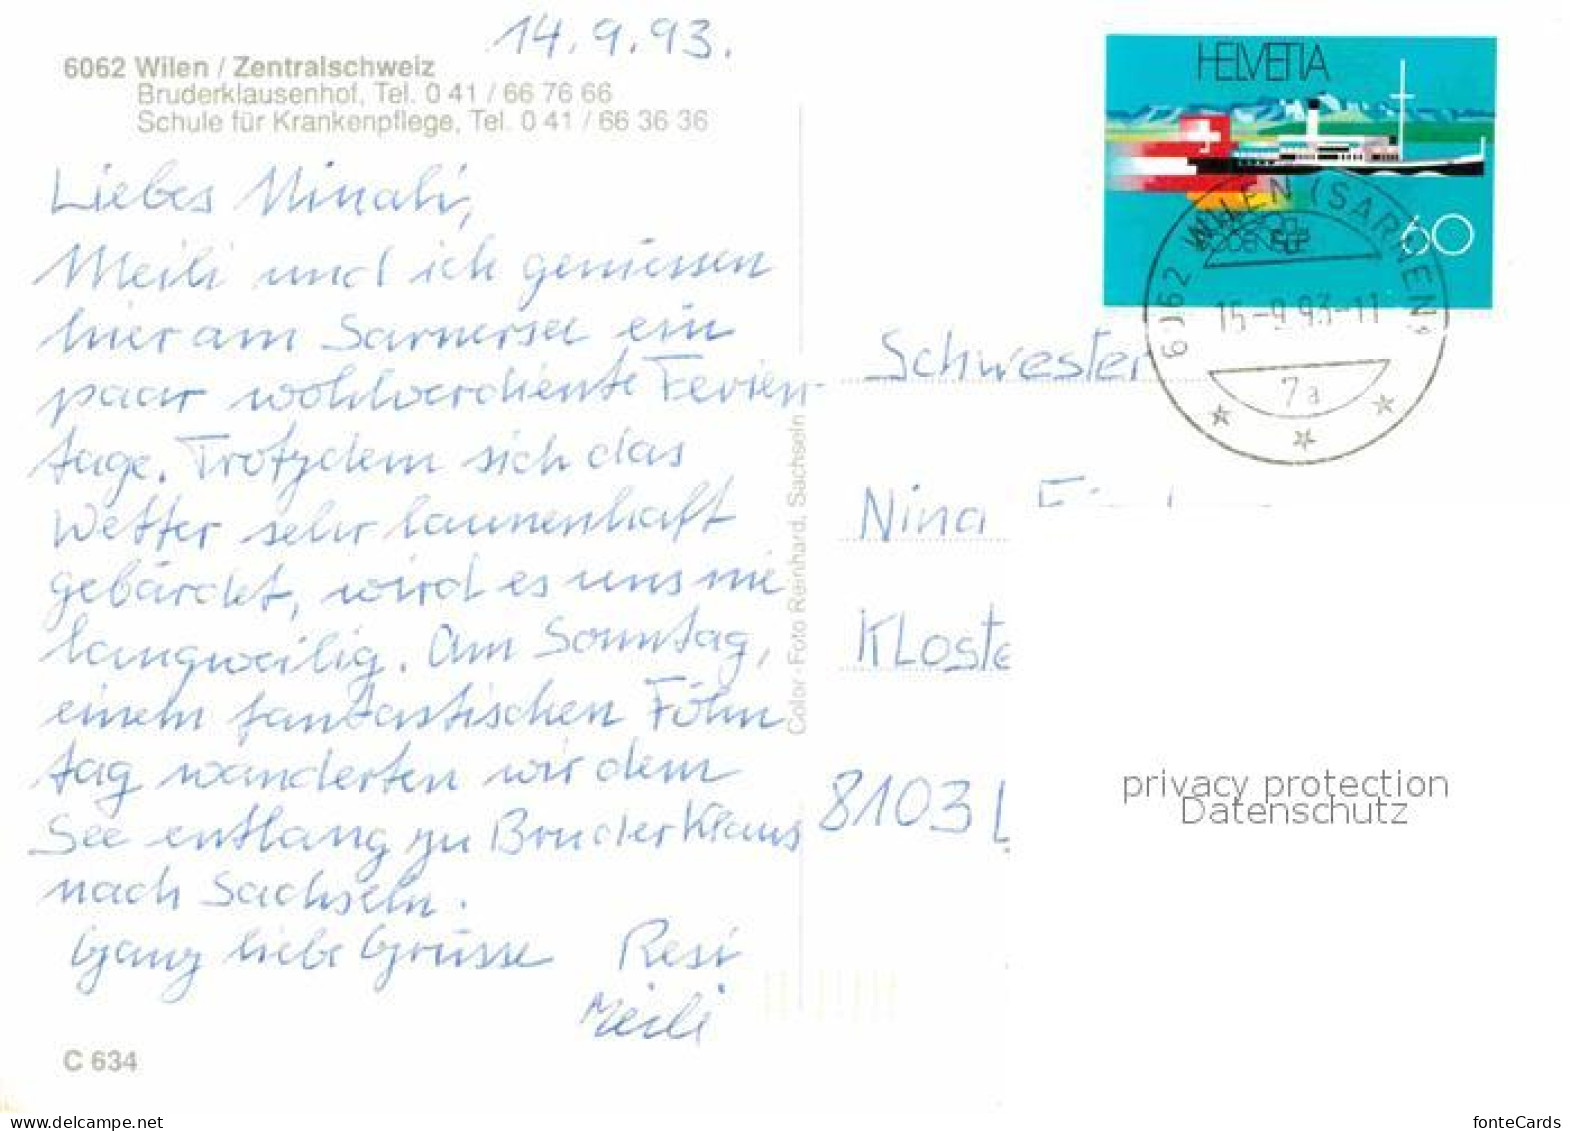 14.9.93.
6062 Wilen / Zentralschweiz
Bruderklausenhof, Tel. 0 41 / 66 76 66
Schule für Krankenpflege, Tel. 0 41 / 66 36 36
Liebes Ninali,
Meili und ich geniessen
hier am Sarnersee ein
paar wohlverdiente Ferien-
tage. Trotzdem sich das
Wetter sehr launenhaft
gebärdet, wird es uns nie
langweilig. Am Sonntag,
einem fantastischen Föhn
tag wanderten wir dem
See entlang zu Bruder Klaus
nach Sachseln.
Ganz liebe Grüsse Resi
Meili
C 634
Color - Foto Reinhard, Sachseln
HELVETIA
60
6062 WILEN (SARNEN)
15-9.93-11
7a
Schwester
Nina
Kloste
8103
privacy protection
Datenschutz
www.delcampe.net
fonteCards